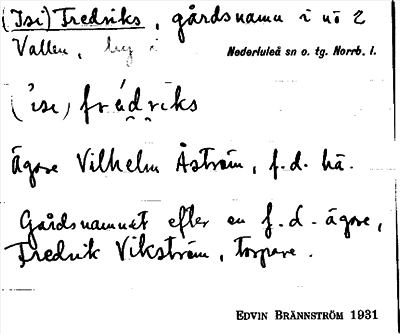 (Isi) Fredriks, gårdsnamn i nö 2
Vallen, by i Nederluleå sn o. tg. Norrb. l.
('isi) frédriks
Ägare Vilhelm Åström, f.d. hä.
Gårdsnamnet efter en f.d. ägare,
Fredrik Vikström, torpare.
EDVIN BRÄNNSTRÖM 1931